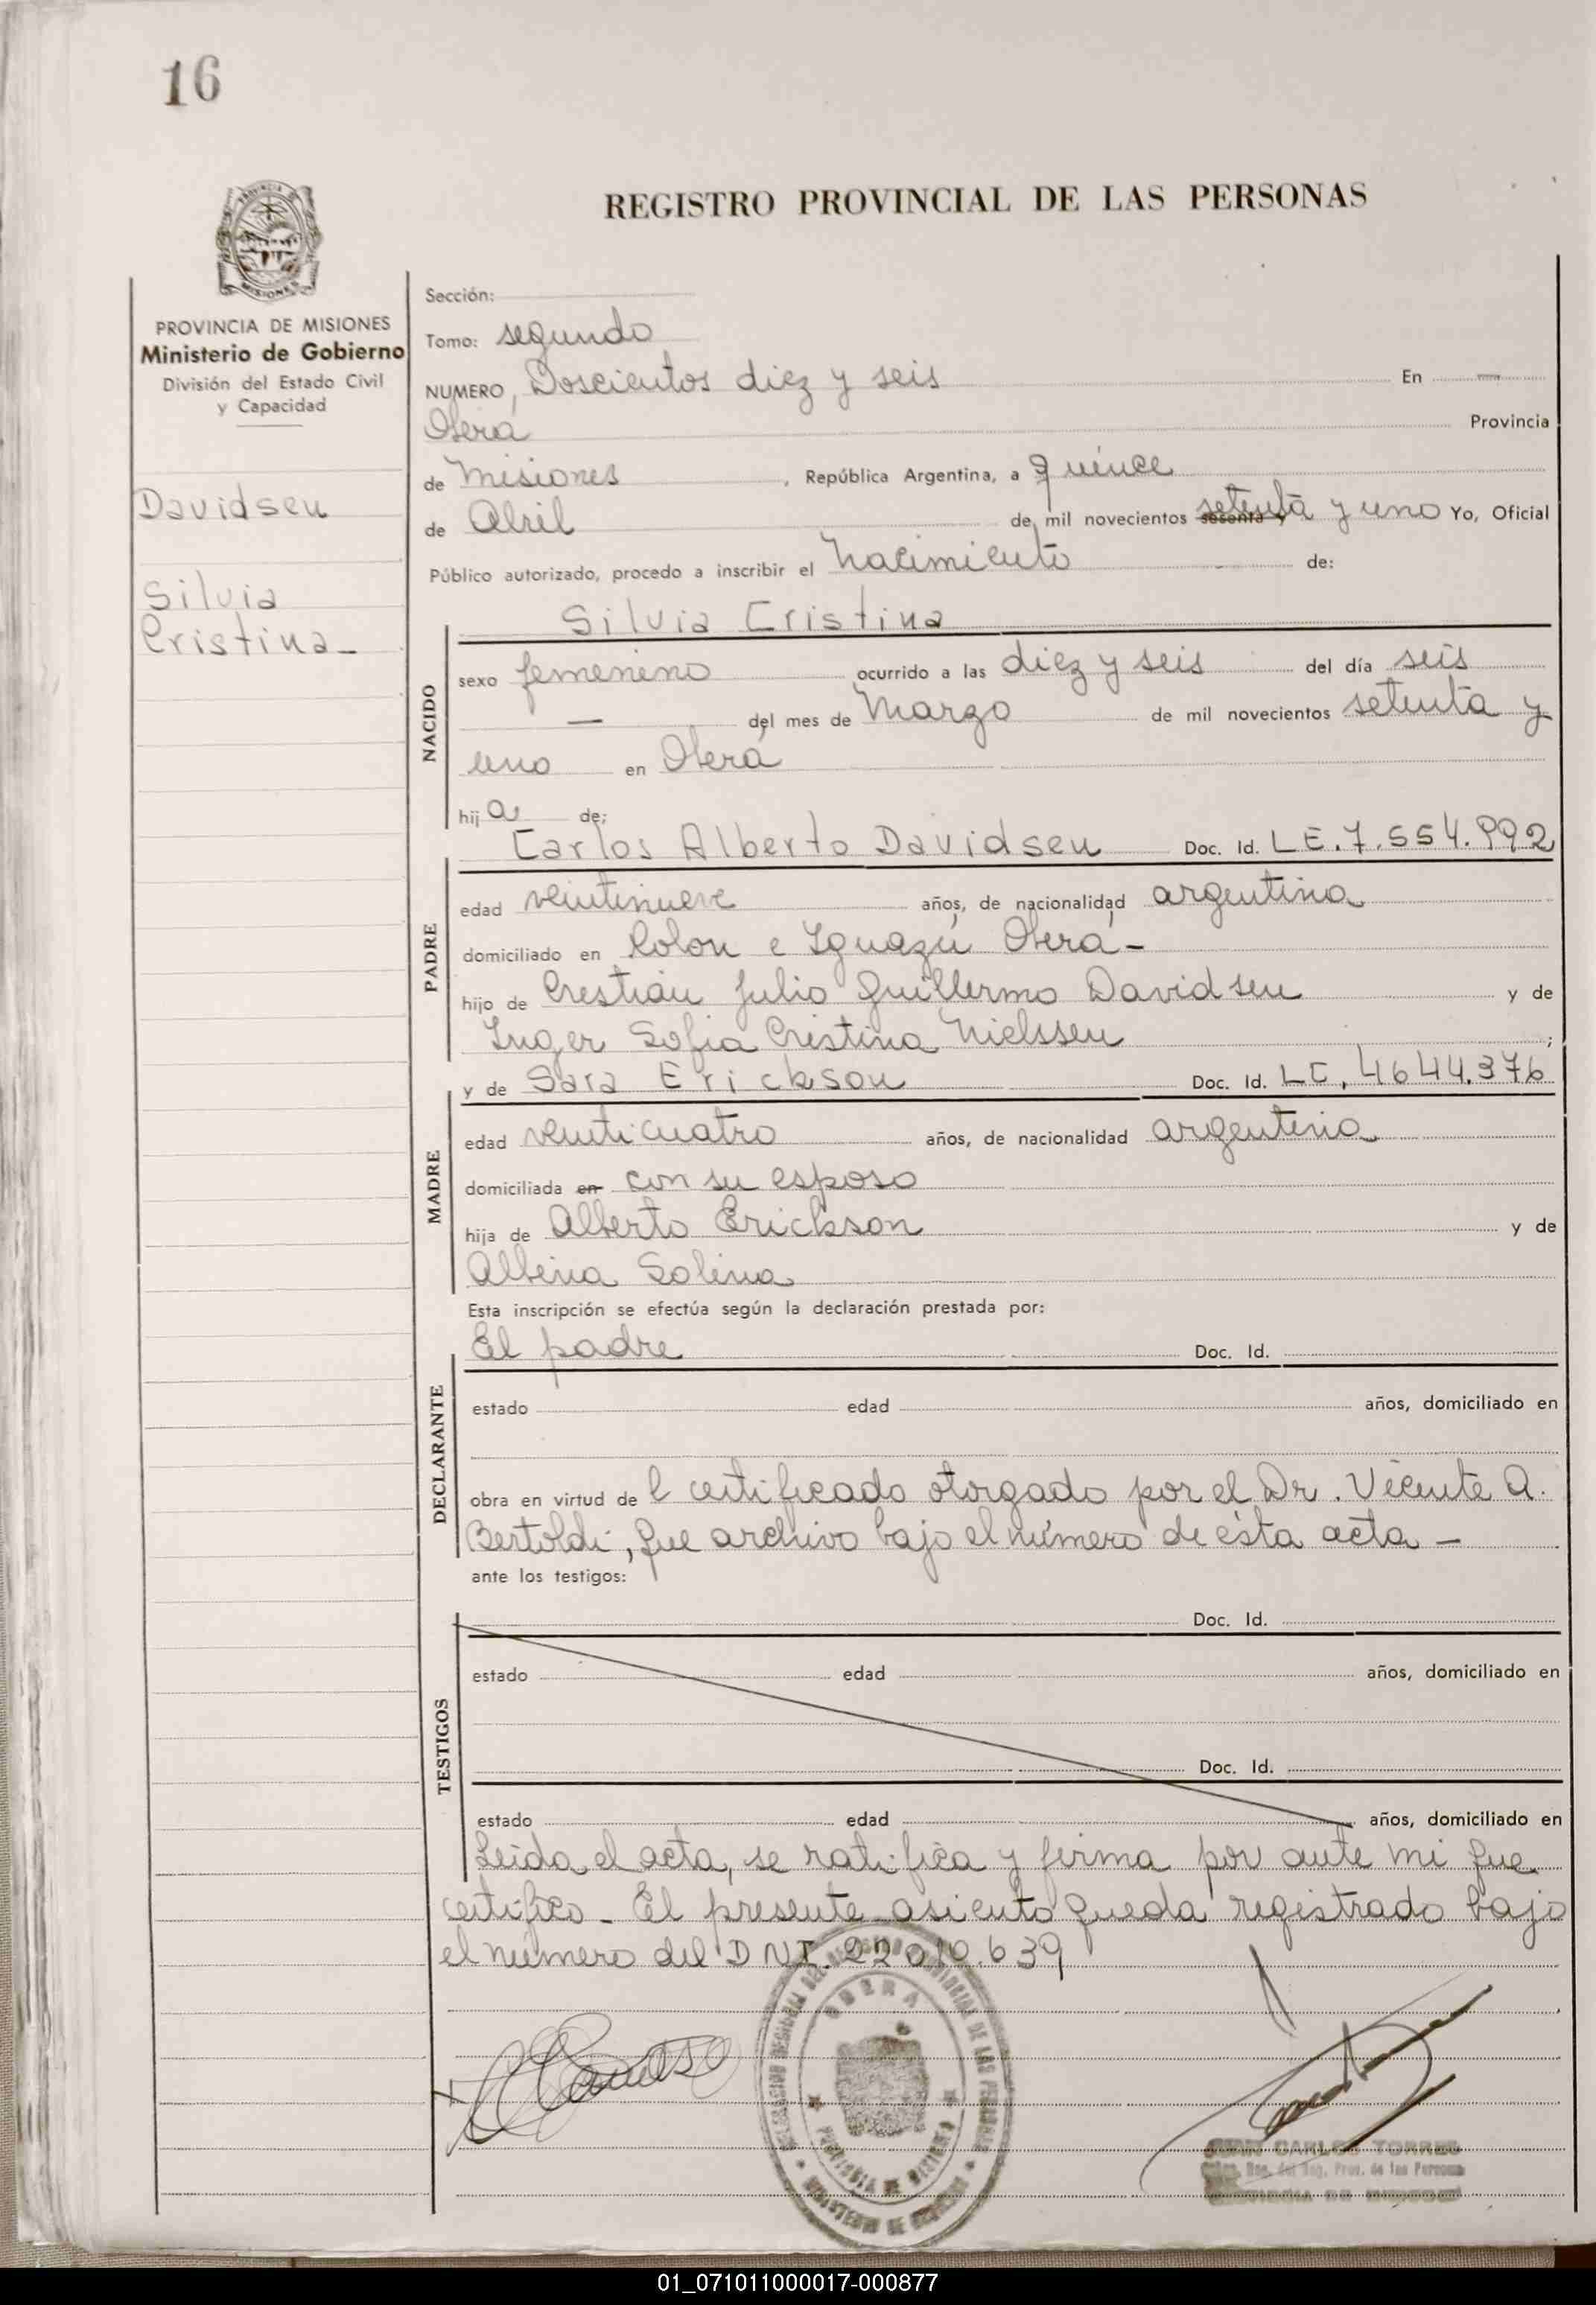 16
REGISTRO PROVINCIAL DE LAS PERSONAS
MISIONES
PROVINCIA DE MISIONES
Ministerio de Gobierno
División del Estado Civil
y Capacidad
Davidsen
Silvia
Cristina -
Sección:
Tomo: segundo
NUMERO, Doscientos diez y seis En —
Oberá Provincia
de Misiones, República Argentina, a quince
de Abril de mil novecientos sesenta y setenta y uno Yo, Oficial
Público autorizado, procedo a inscribir el nacimiento de:
Silvia Cristina
NACIDO
sexo femenino ocurrido a las diez y seis del día seis
— del mes de Marzo de mil novecientos setenta y
uno en Oberá
hija de;
Carlos Alberto Davidsen Doc. Id. LE. 7.554.992
PADRE
edad veintinueve años, de nacionalidad argentina
domiciliado en Colon e Iguazú Oberá -
hijo de Cristian Julio Guillermo Davidsen y de
Inger Sofia Cristina Nielssen;
y de Sara Erickson Doc. Id. LC. 4644.376
MADRE
edad veinticuatro años, de nacionalidad argentina
domiciliada en con su esposo
hija de Alberto Erickson y de
Albina Solina
Esta inscripción se efectúa según la declaración prestada por:
El padre Doc. Id.
DECLARANTE
estado edad años, domiciliado en
obra en virtud de l certificado otorgado por el Dr. Vicente A.
Bertoldi, que archivo bajo el número de ésta acta -
ante los testigos:
Doc. Id.
TESTIGOS
estado edad años, domiciliado en
Doc. Id.
estado edad años, domiciliado en
Leida el acta, se ratifica y firma por ante mi que
certifico - El presente asiento queda registrado bajo
el número del DNI. 22.010.639
OBERA
PROVINCIA DE MISIONES
MINISTERIO DE GOBIERNO
JUAN CARLOS TORRES
Reg. Prov. de las Personas
PROVINCIA DE MISIONES
01_071011000017-000877